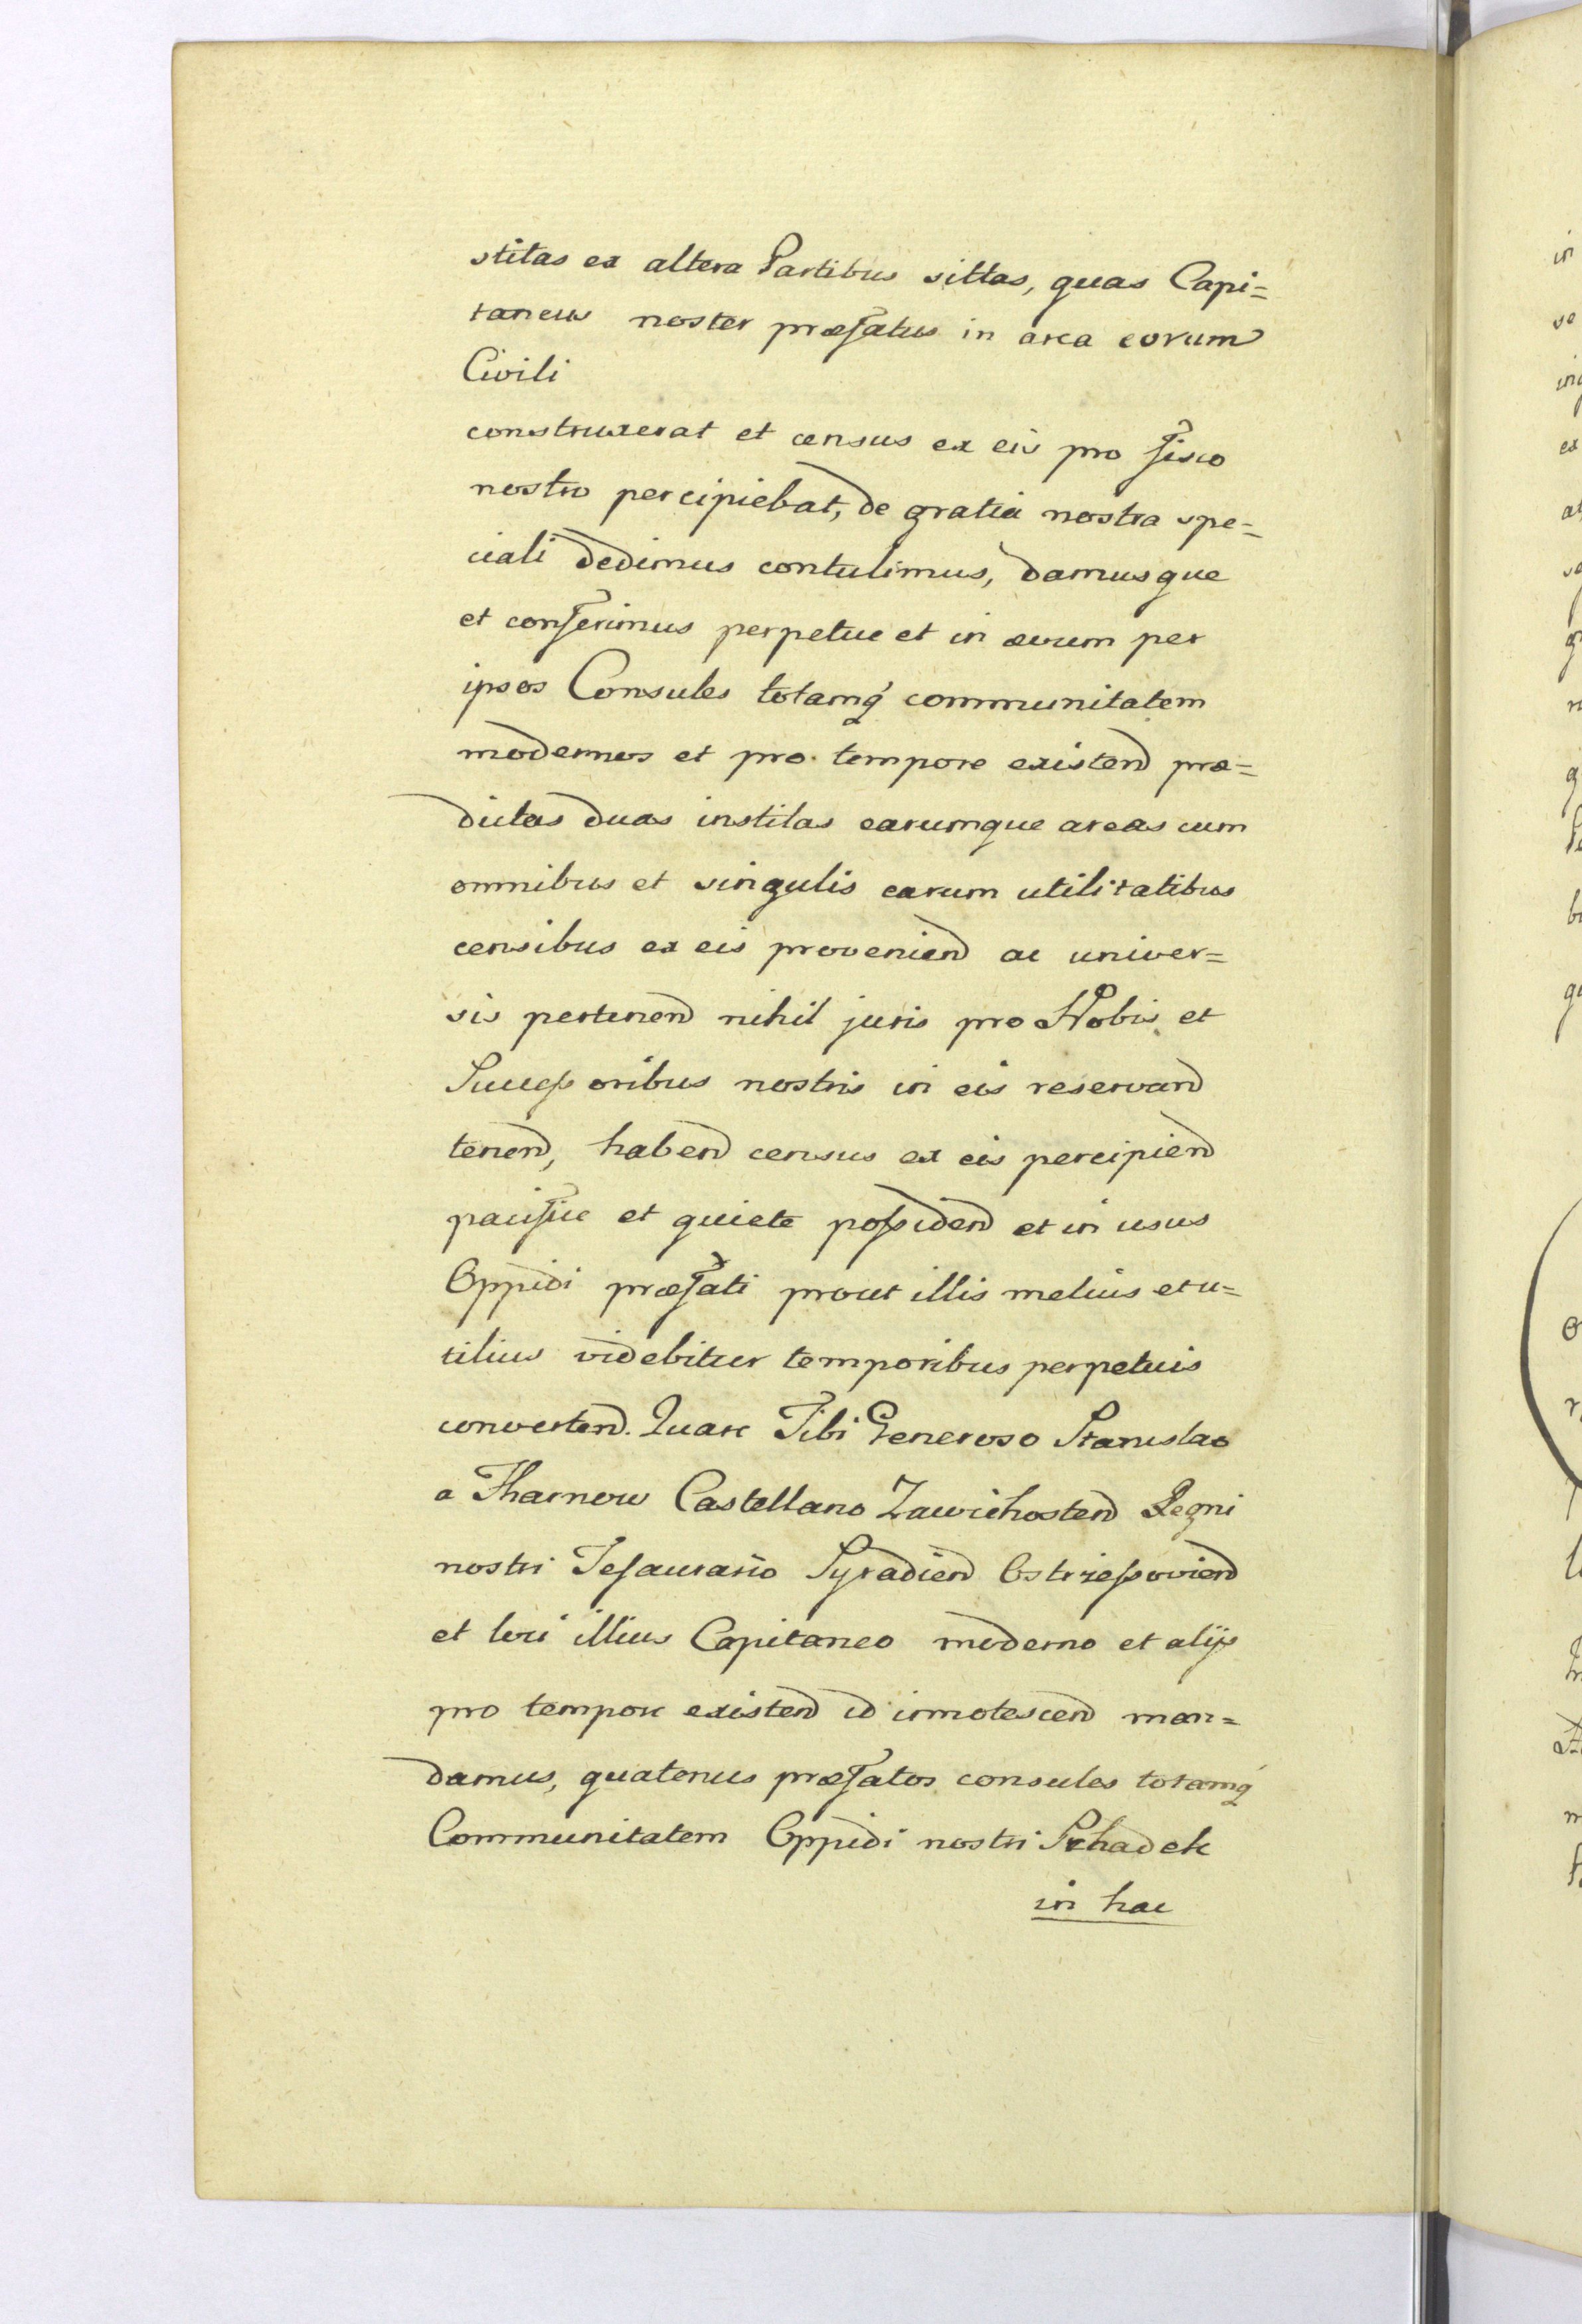 stitas ex altera Partibus sittas, quas Capi=
taneus noster præfatus in area eorum
Civili
construxerat et census ex eis pro fisco
nostro percipiebat, de gratia nostra spe=
ciali dedimus contulimus, damusque
et conferimus perpetue et in ævum per
ipsos Consules totamq́ communitatem
modernos et pro tempore existend præ=
dictas duas institas earumque areas cum
omnibus et singulis earum utilitatibus
censibus ex eis proveniend ac univer=
sis pertinend nihil juris pro Nobis et
Successoribus nostris in eis reservand
tenend, habend census ex eis percipiend
pacifice et quiete possidend et in usus
Oppidi præfati prout illis melius et u=
tilius videbitur temporibus perpetuis
convertend. Quare Tibi Generoso Stanislao
a Tharnow Castellano Zawichostend Regni
nostri Tesaurario Syradiend Ostrzessoviend
et loci illius Capitaneo moderno et alijs
pro tempore existend id innotescend man=
damus, quatenus præfatos consules totamq́
Communitatem Oppidi nostri Schadek
in hac